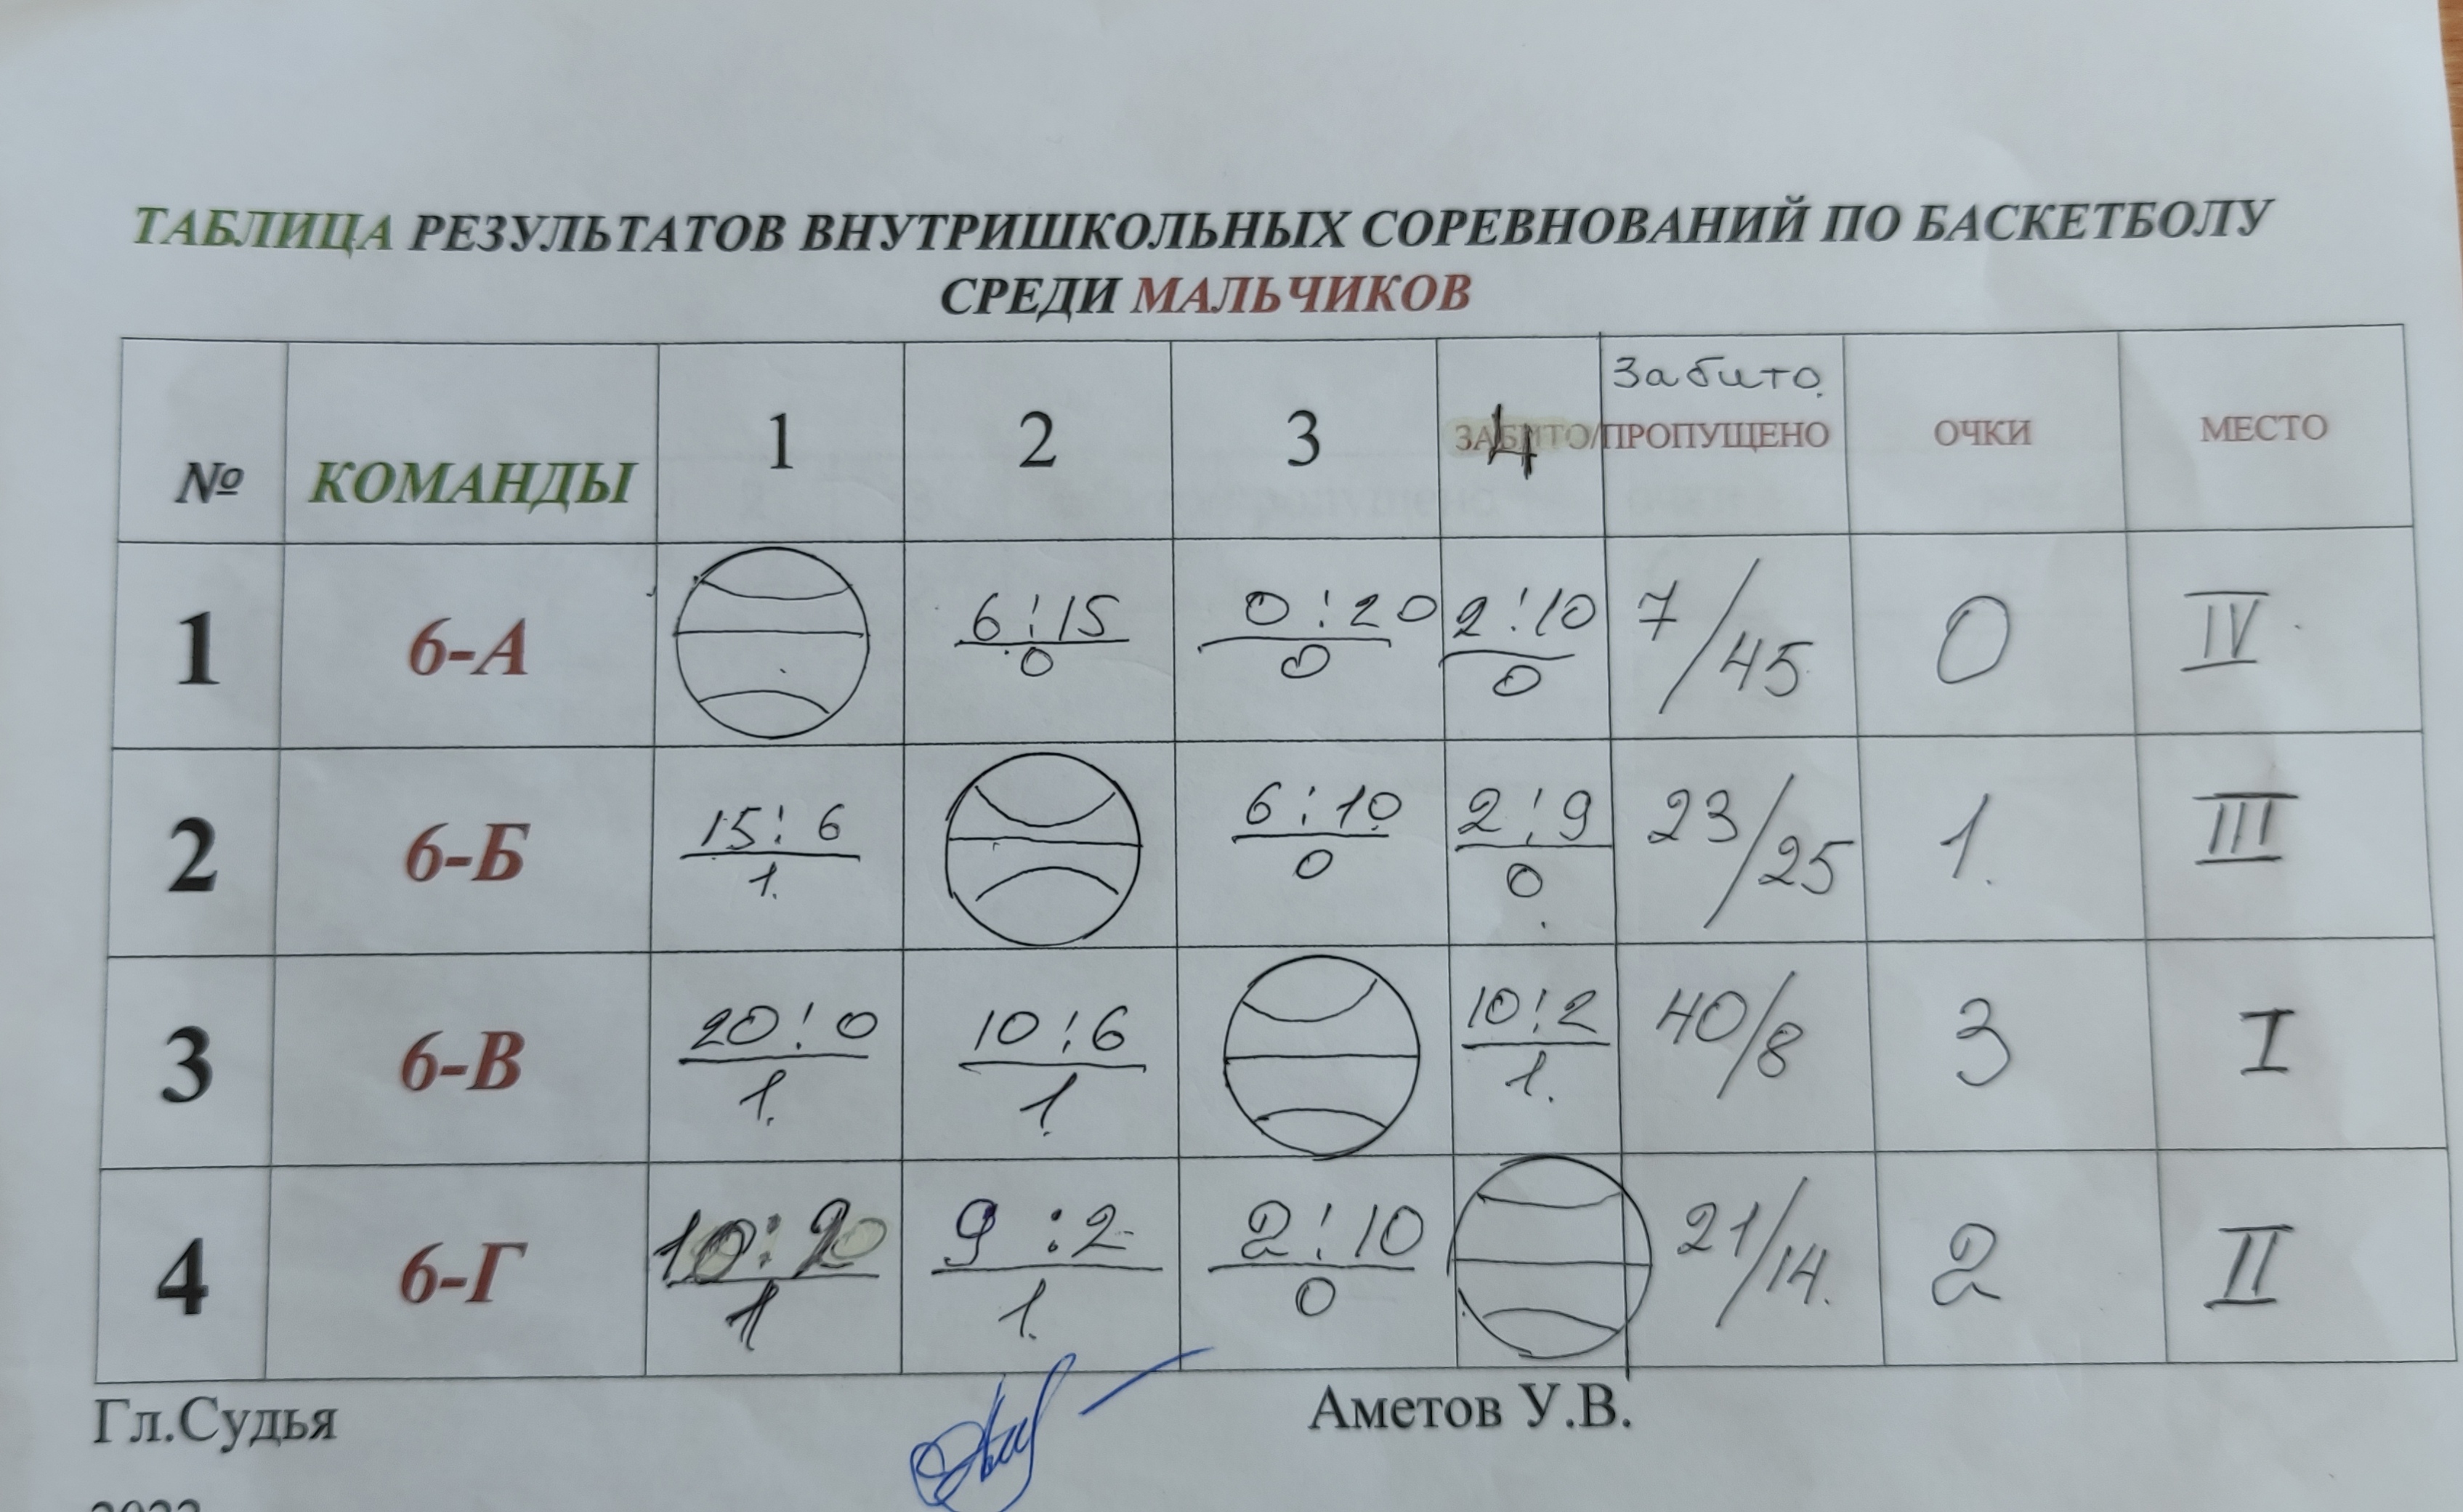 ТАБЛИЦА РЕЗУЛЬТАТОВ ВНУТРИШКОЛЬНЫХ СОРЕВНОВАНИЙ ПО БАСКЕТБОЛУ
СРЕДИ МАЛЬЧИКОВ
№ КОМАНДЫ 1 2 3 4 Забито. ЗАБИТО/ПРОПУЩЕНО ОЧКИ МЕСТО
1 6-А 6:15 0:20 2:10 7/45 0 IV
0 0 0
2 6-Б 15:6 6:10 2:9 23/25 1. III
1. 0 0
3 6-В 20:0 10:6 10:2 40/8 3 I
1. 1. 1.
4 6-Г 10: 9:2 2:10 21/14. 2 II
1 1. 0
Гл.Судья Аметов У.В.